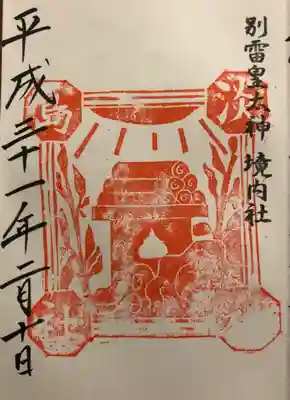 別雷皇太神 境内社
平成三十一年二月十日